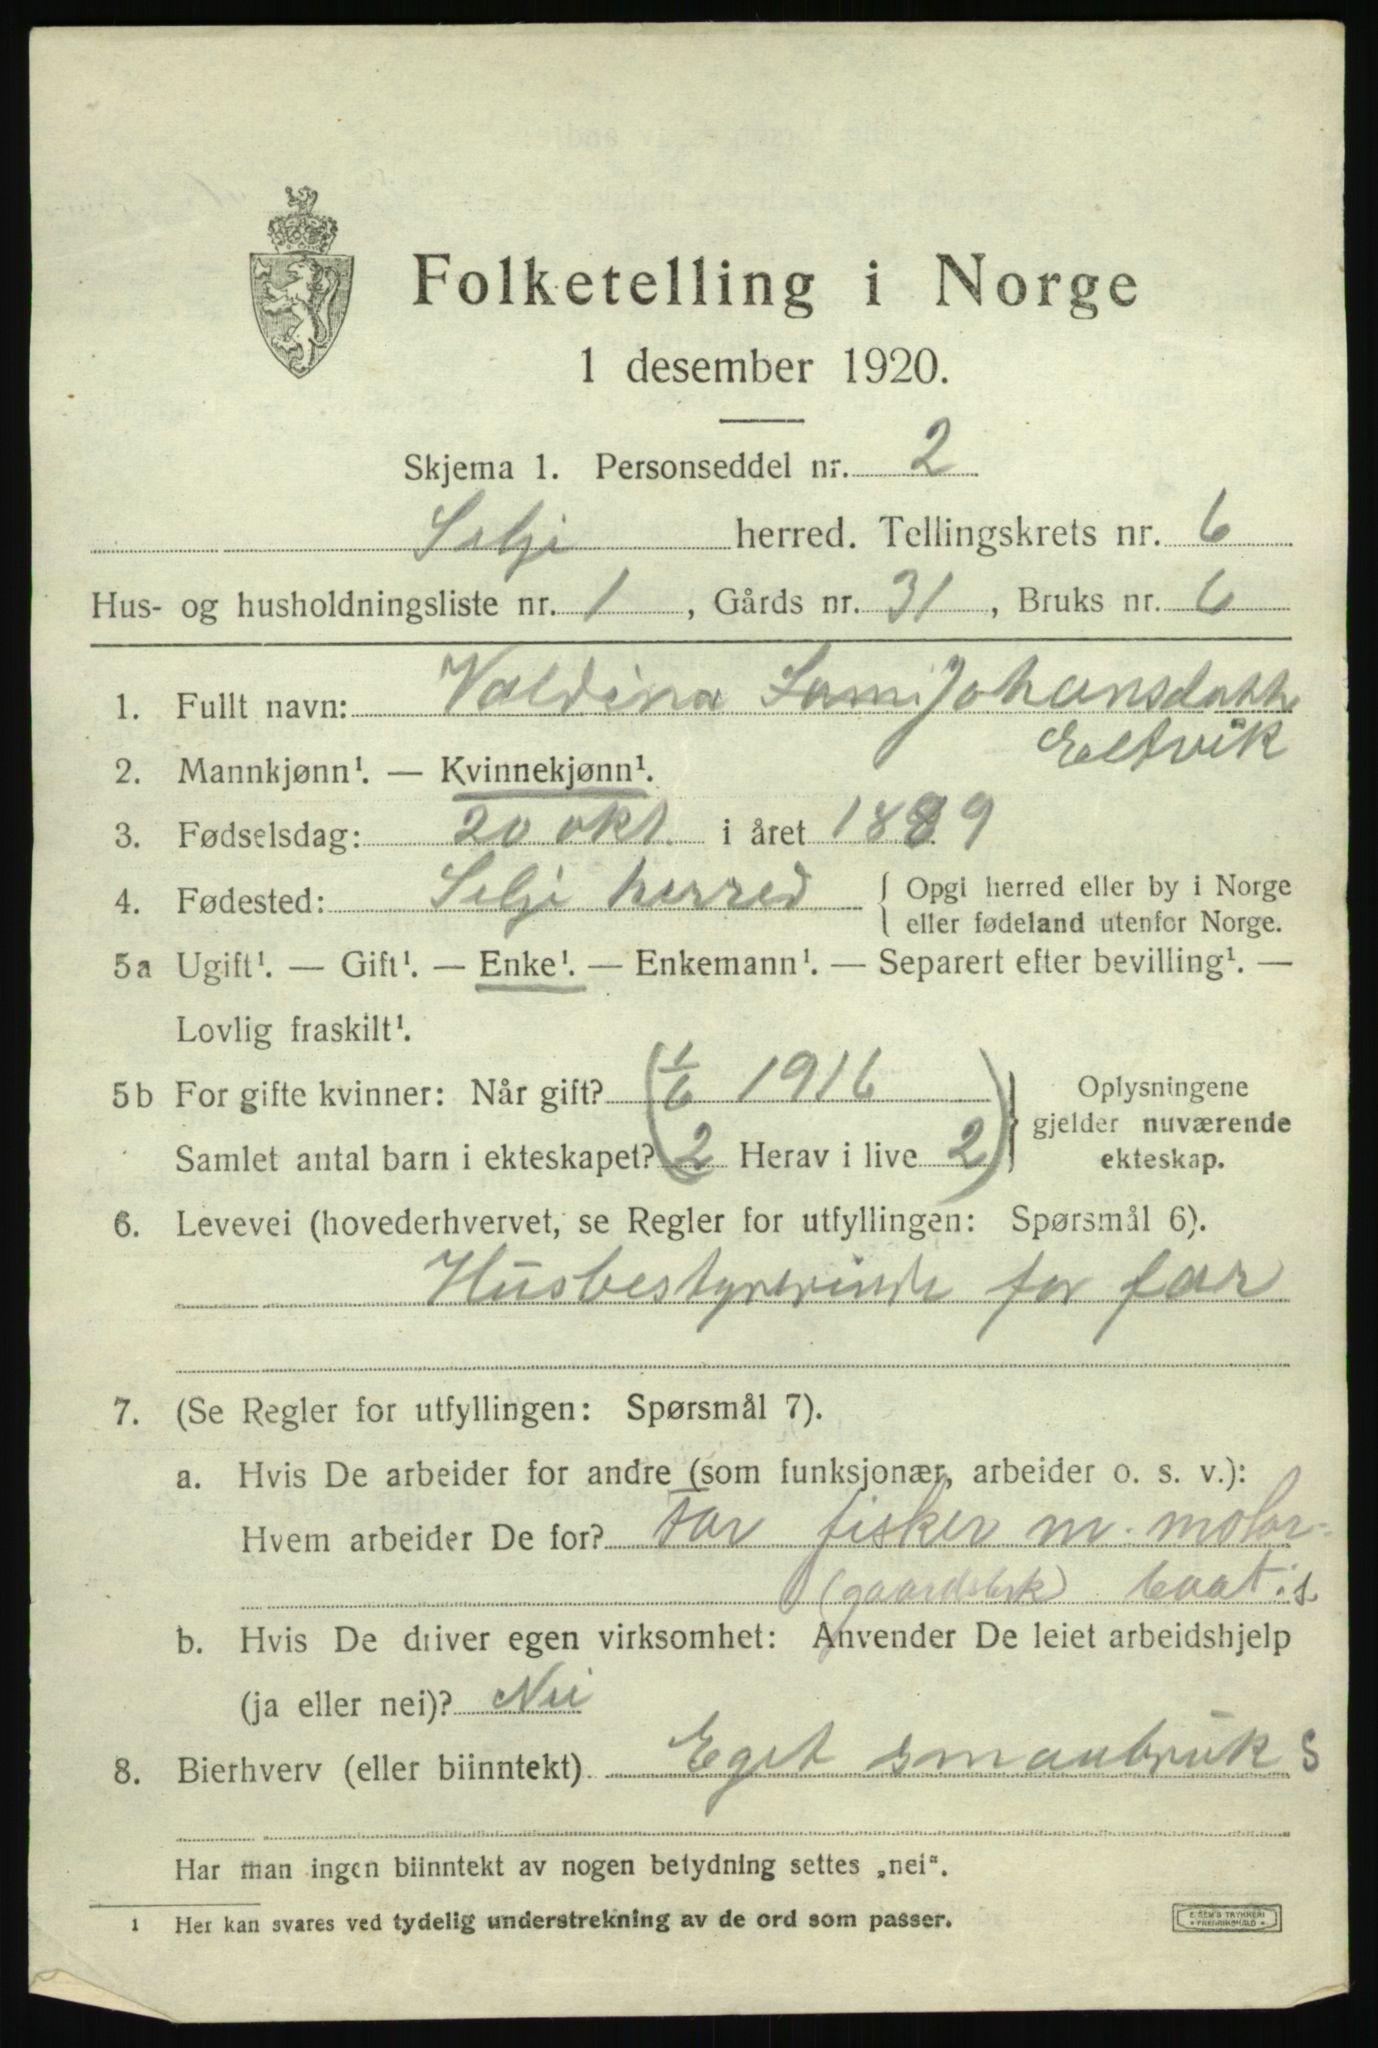 Folketelling i Norge
1 desember 1920.
Skjema 1. Personseddel nr. 2
Selje herred. Tellingskrets nr. 6
Hus- og husholdningsliste nr. 1, Gårds nr. 31, Bruks nr. 6
1. Fullt navn: Valdina Johansdatter
Eltvik
2. Mannkjønn¹. — Kvinnekjønn¹.
3. Fødselsdag: 20 okt. i året 1889
4. Fødested: Selje herred { Opgi herred eller by i Norge
eller fødeland utenfor Norge.
5a Ugift¹. — Gift¹. — Enke¹. — Enkemann¹. — Separert efter bevilling¹. —
Lovlig fraskilt¹.
5b For gifte kvinner: Når gift? (1/6 1916
Samlet antal barn i ekteskapet? 2 Herav i live 2)
Oplysningene
gjelder nuværende
ekteskap.
6. Levevei (hovederhvervet, se Regler for utfyllingen: Spørsmål 6).
Husbestyrerinde for far
7. (Se Regler for utfyllingen: Spørsmål 7).
a. Hvis De arbeider for andre (som funksjonær, arbeider o. s. v.):
Hvem arbeider De for? Far fisker m. motor-
(gaardsbrk) baat. s
b. Hvis De driver egen virksomhet: Anvender De leiet arbeidshjelp
(ja eller nei)? Nei
8. Bierhverv (eller biinntekt) Eget smaabruk s
Har man ingen biinntekt av nogen betydning settes „nei“.
1 Her kan svares ved tydelig understrekning av de ord som passer.
E. SEM'S TRYKKERI
• FREDRIKSHALD •